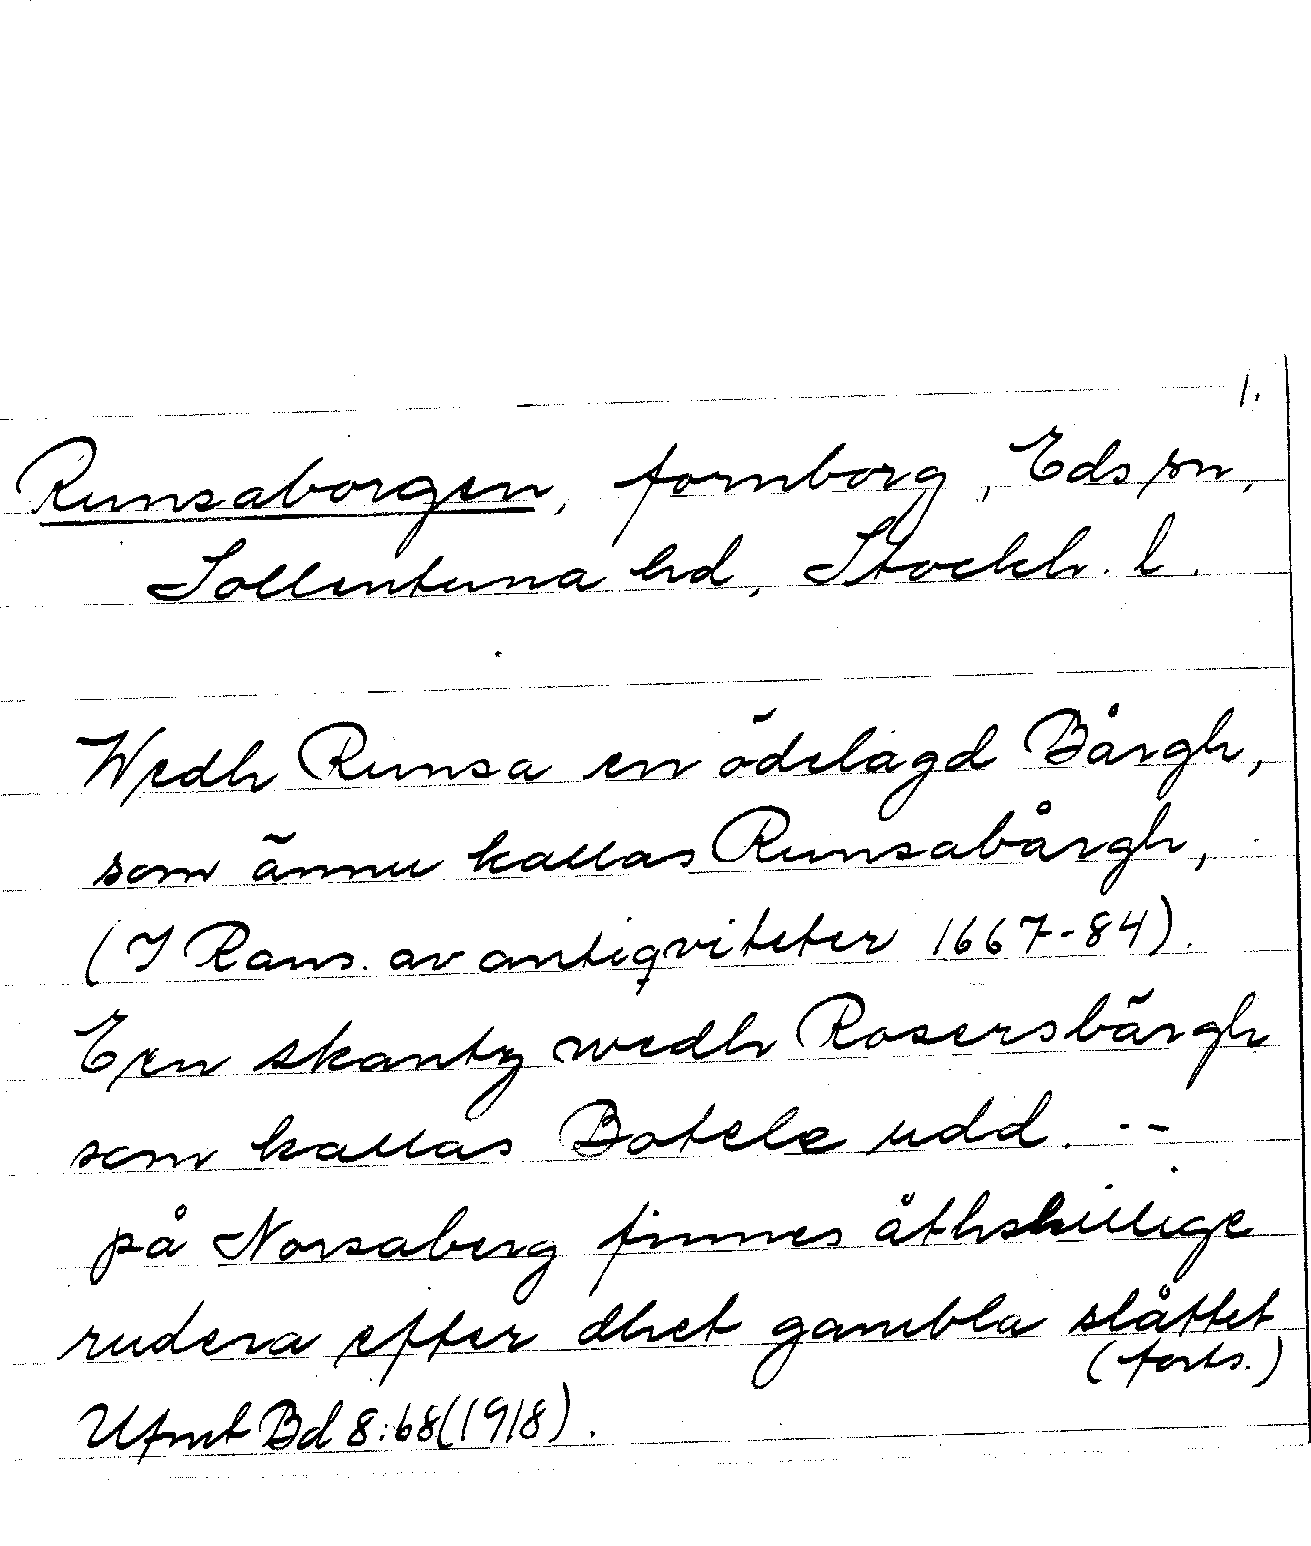 1.
Runsaborgen, fornborg, Eds sn,
Sollentuna hd, Stockh. l.
Wedh Runsa en ödelagd Bårgh,
som ännu kallas Runsabårgh,
(I Rans. av antiqviteter 1667-84).
Een skantz wedh Rosersbärgh
som kallas Botele udd. --
på Norsaberg finnes åthskillige
rudera efter dhet gambla slåttet
(forts.)
Ufmt Bd 8:68(1918).